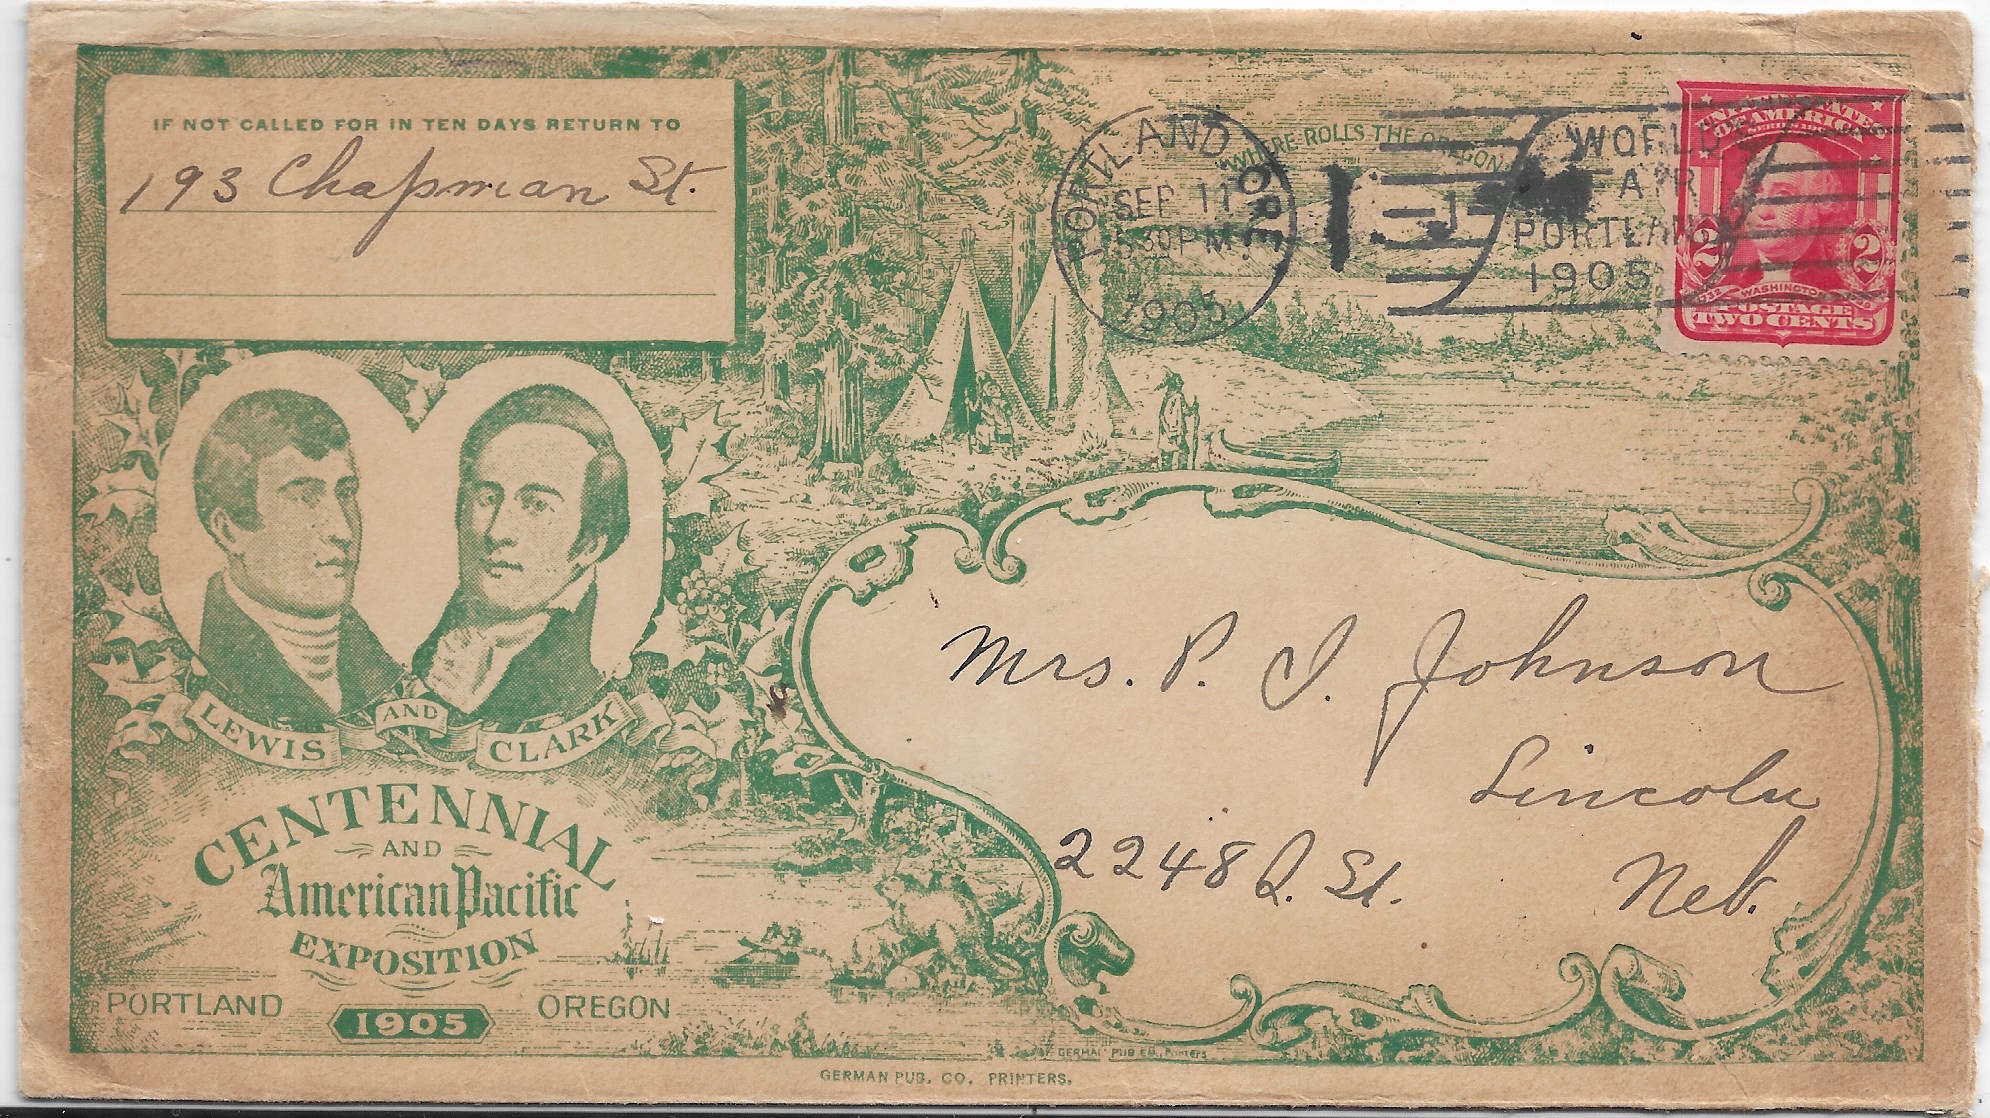 IF NOT CALLED FOR IN TEN DAYS RETURN TO
193 Chapman St.
WHERE ROLLS THE OREGON
PORTLAND ORE.
SEP 11
5 30 PM
1905
WORLD'S
FAIR
PORTLAND
1905
UNITED STATES
OF AMERICA
2 2
1732 WASHINGTON 1799
POSTAGE
TWO CENTS
LEWIS AND CLARK
CENTENNIAL
AND
American Pacific
EXPOSITION
PORTLAND 1905 OREGON
Mrs. P. J. Johnson
Lincoln
2248 Q. St. Neb.
GERMAN PUB CO., Printers
GERMAN PUB. CO. PRINTERS.